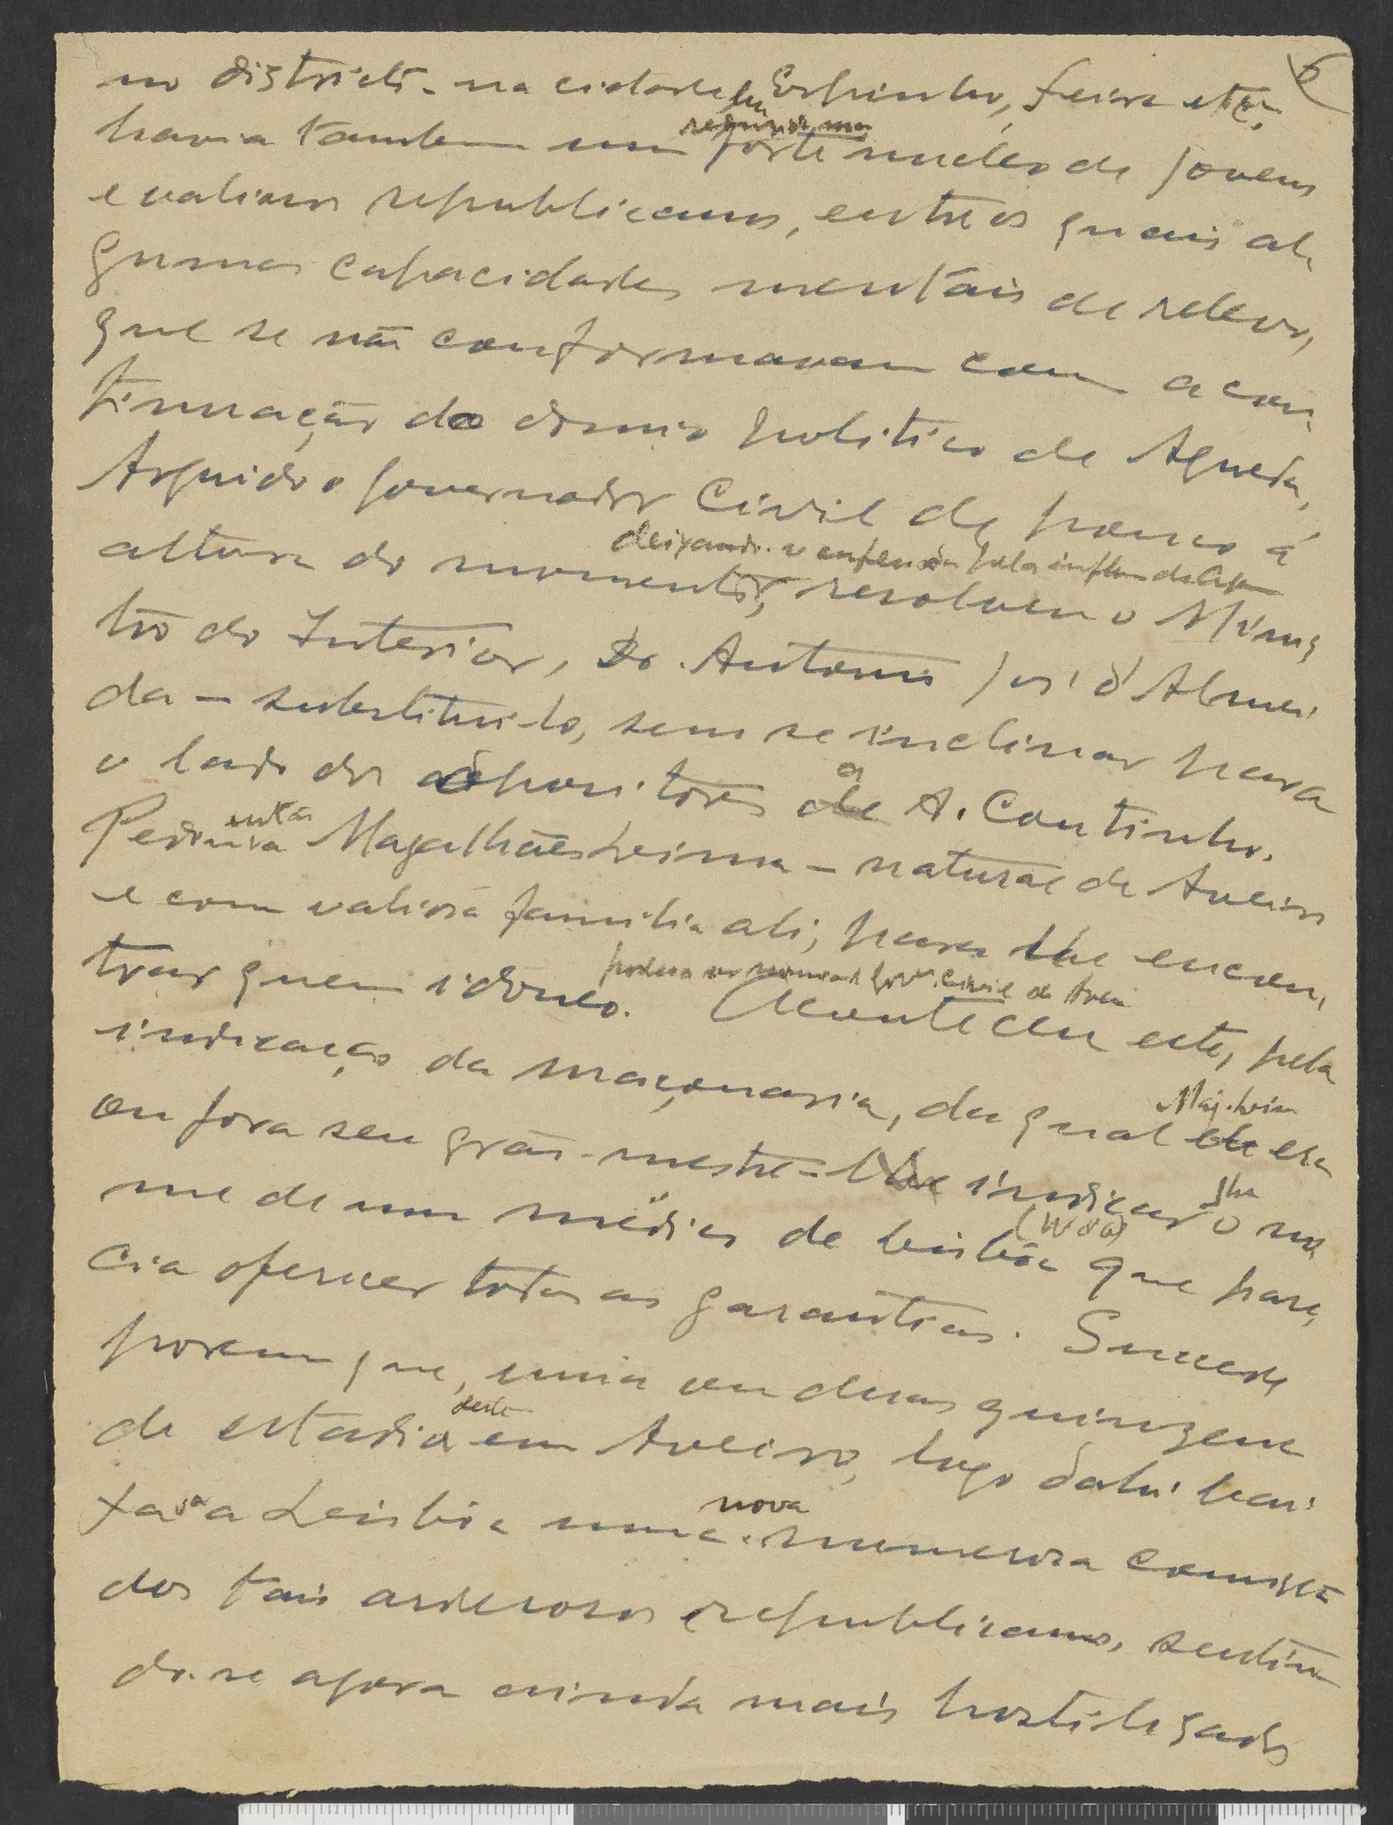 6
no districto - na cidade, Espinho, Feira etc,
havia tambem um forte nucleo de jovens
e valiosos republicanos, entre os quais al-
gumas capacidades mentais de relevo,
que se não conformavam com a con-
tinuação do dominio politico de Agueda.
Arguido o governador Civil de pouco á
altura do momento, resolveu o Minis
tro do Interior, Dr. Antonio José d'Almei
da - substitui-lo, sem se inclinar para
o lado dos opositores a A. Coutinho.
então
Pediu a Magalhães Leima - natural de Aveiro
e com valiosa familia ali, para lhe encon-
trar quem idoneo.
poder nomear Gov. Civil de Avei
Aconteceu este, pela
indicação da maçonaria, da qual
Mag. Leim
era
ou fora seu grão-mestre - indicar
lhe
o no
me de um médico de Lisbôa que pare,
cia oferecer todas as garantias. Sucede
porem que, uma ou duas quinzenas
de estadia
deste
em Aveiro, logo dahi hai
xava a Leisbôa uma
nova
numerosa comissã
dos tais ardorosos republicanos, sentin
do-se agora ainda mais hostilizados